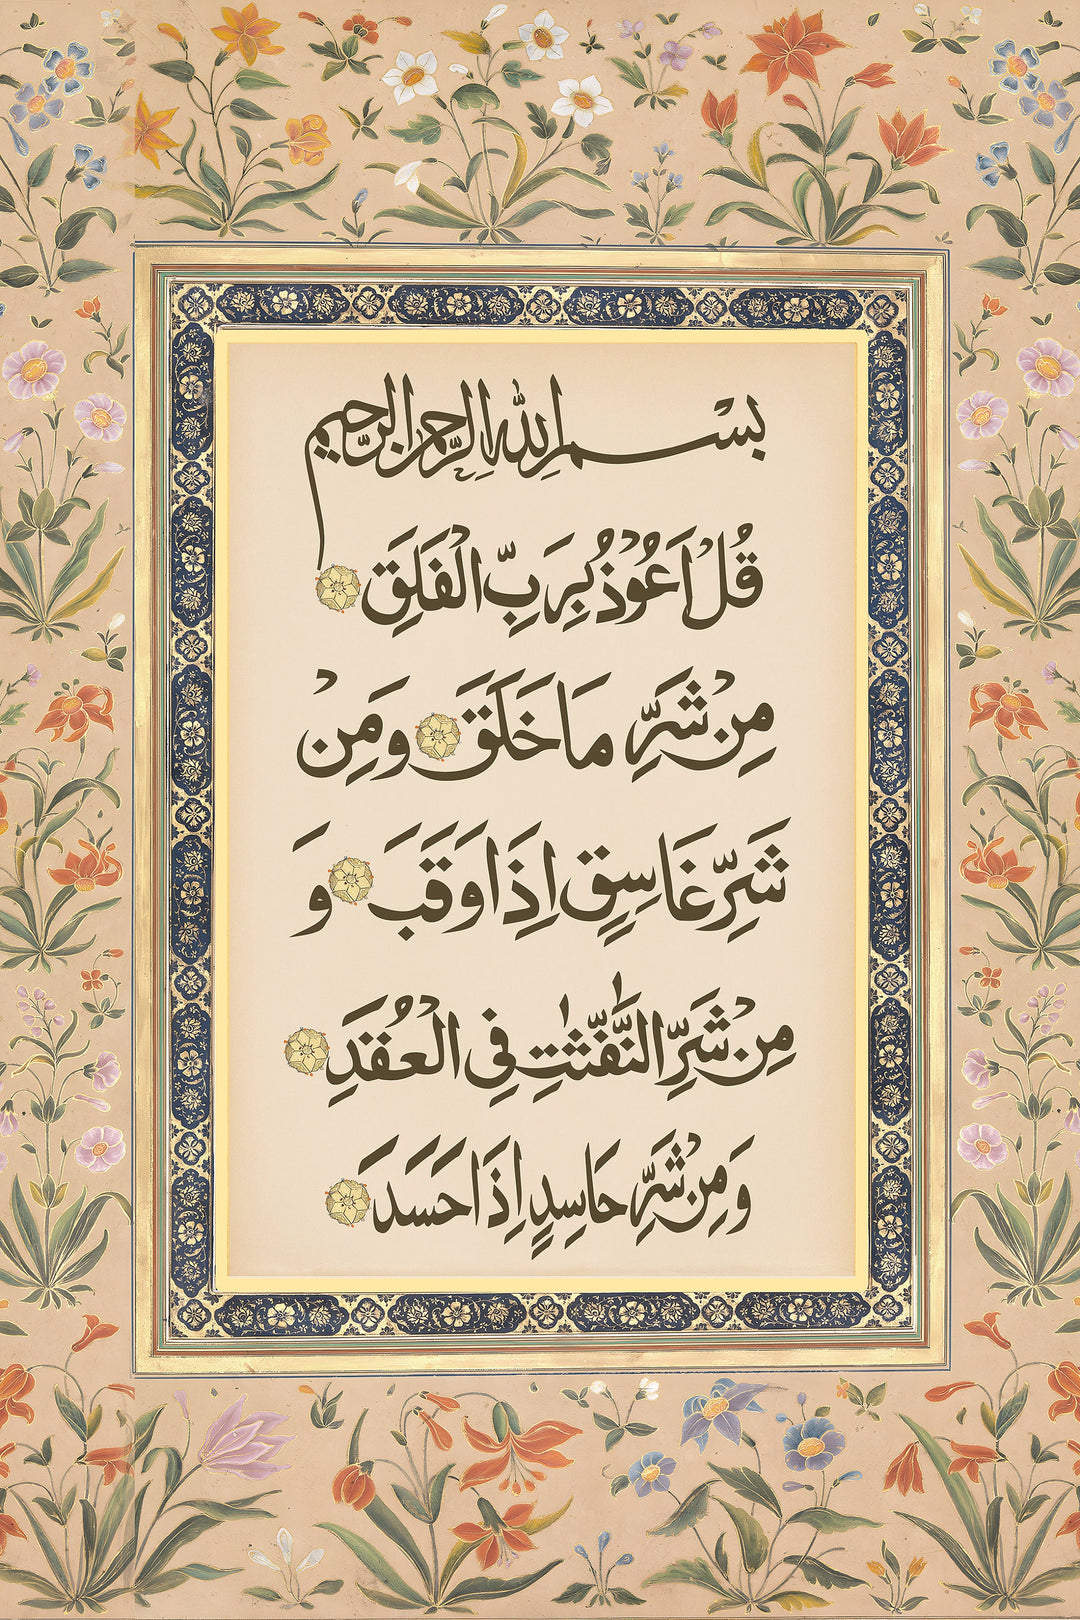 بسم الله الرحمن الرحيم
قُلْ اَعُوْذُ بِرَبِّ الْفَلَقِ
مِنْ شَرِّ مَا خَلَقَ وَمِنْ
شَرِّ غَاسِقٍ اِذَا وَقَبَ وَ
مِنْ شَرِّ النَّفّٰثٰتِ فِي الْعُقَدِ
وَمِنْ شَرِّ حَاسِدٍ اِذَا حَسَدَ